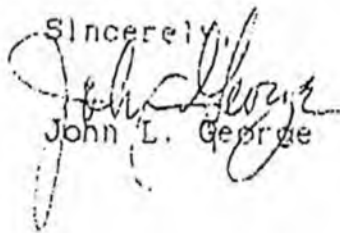 Sincerely,
John L. George
John L. George